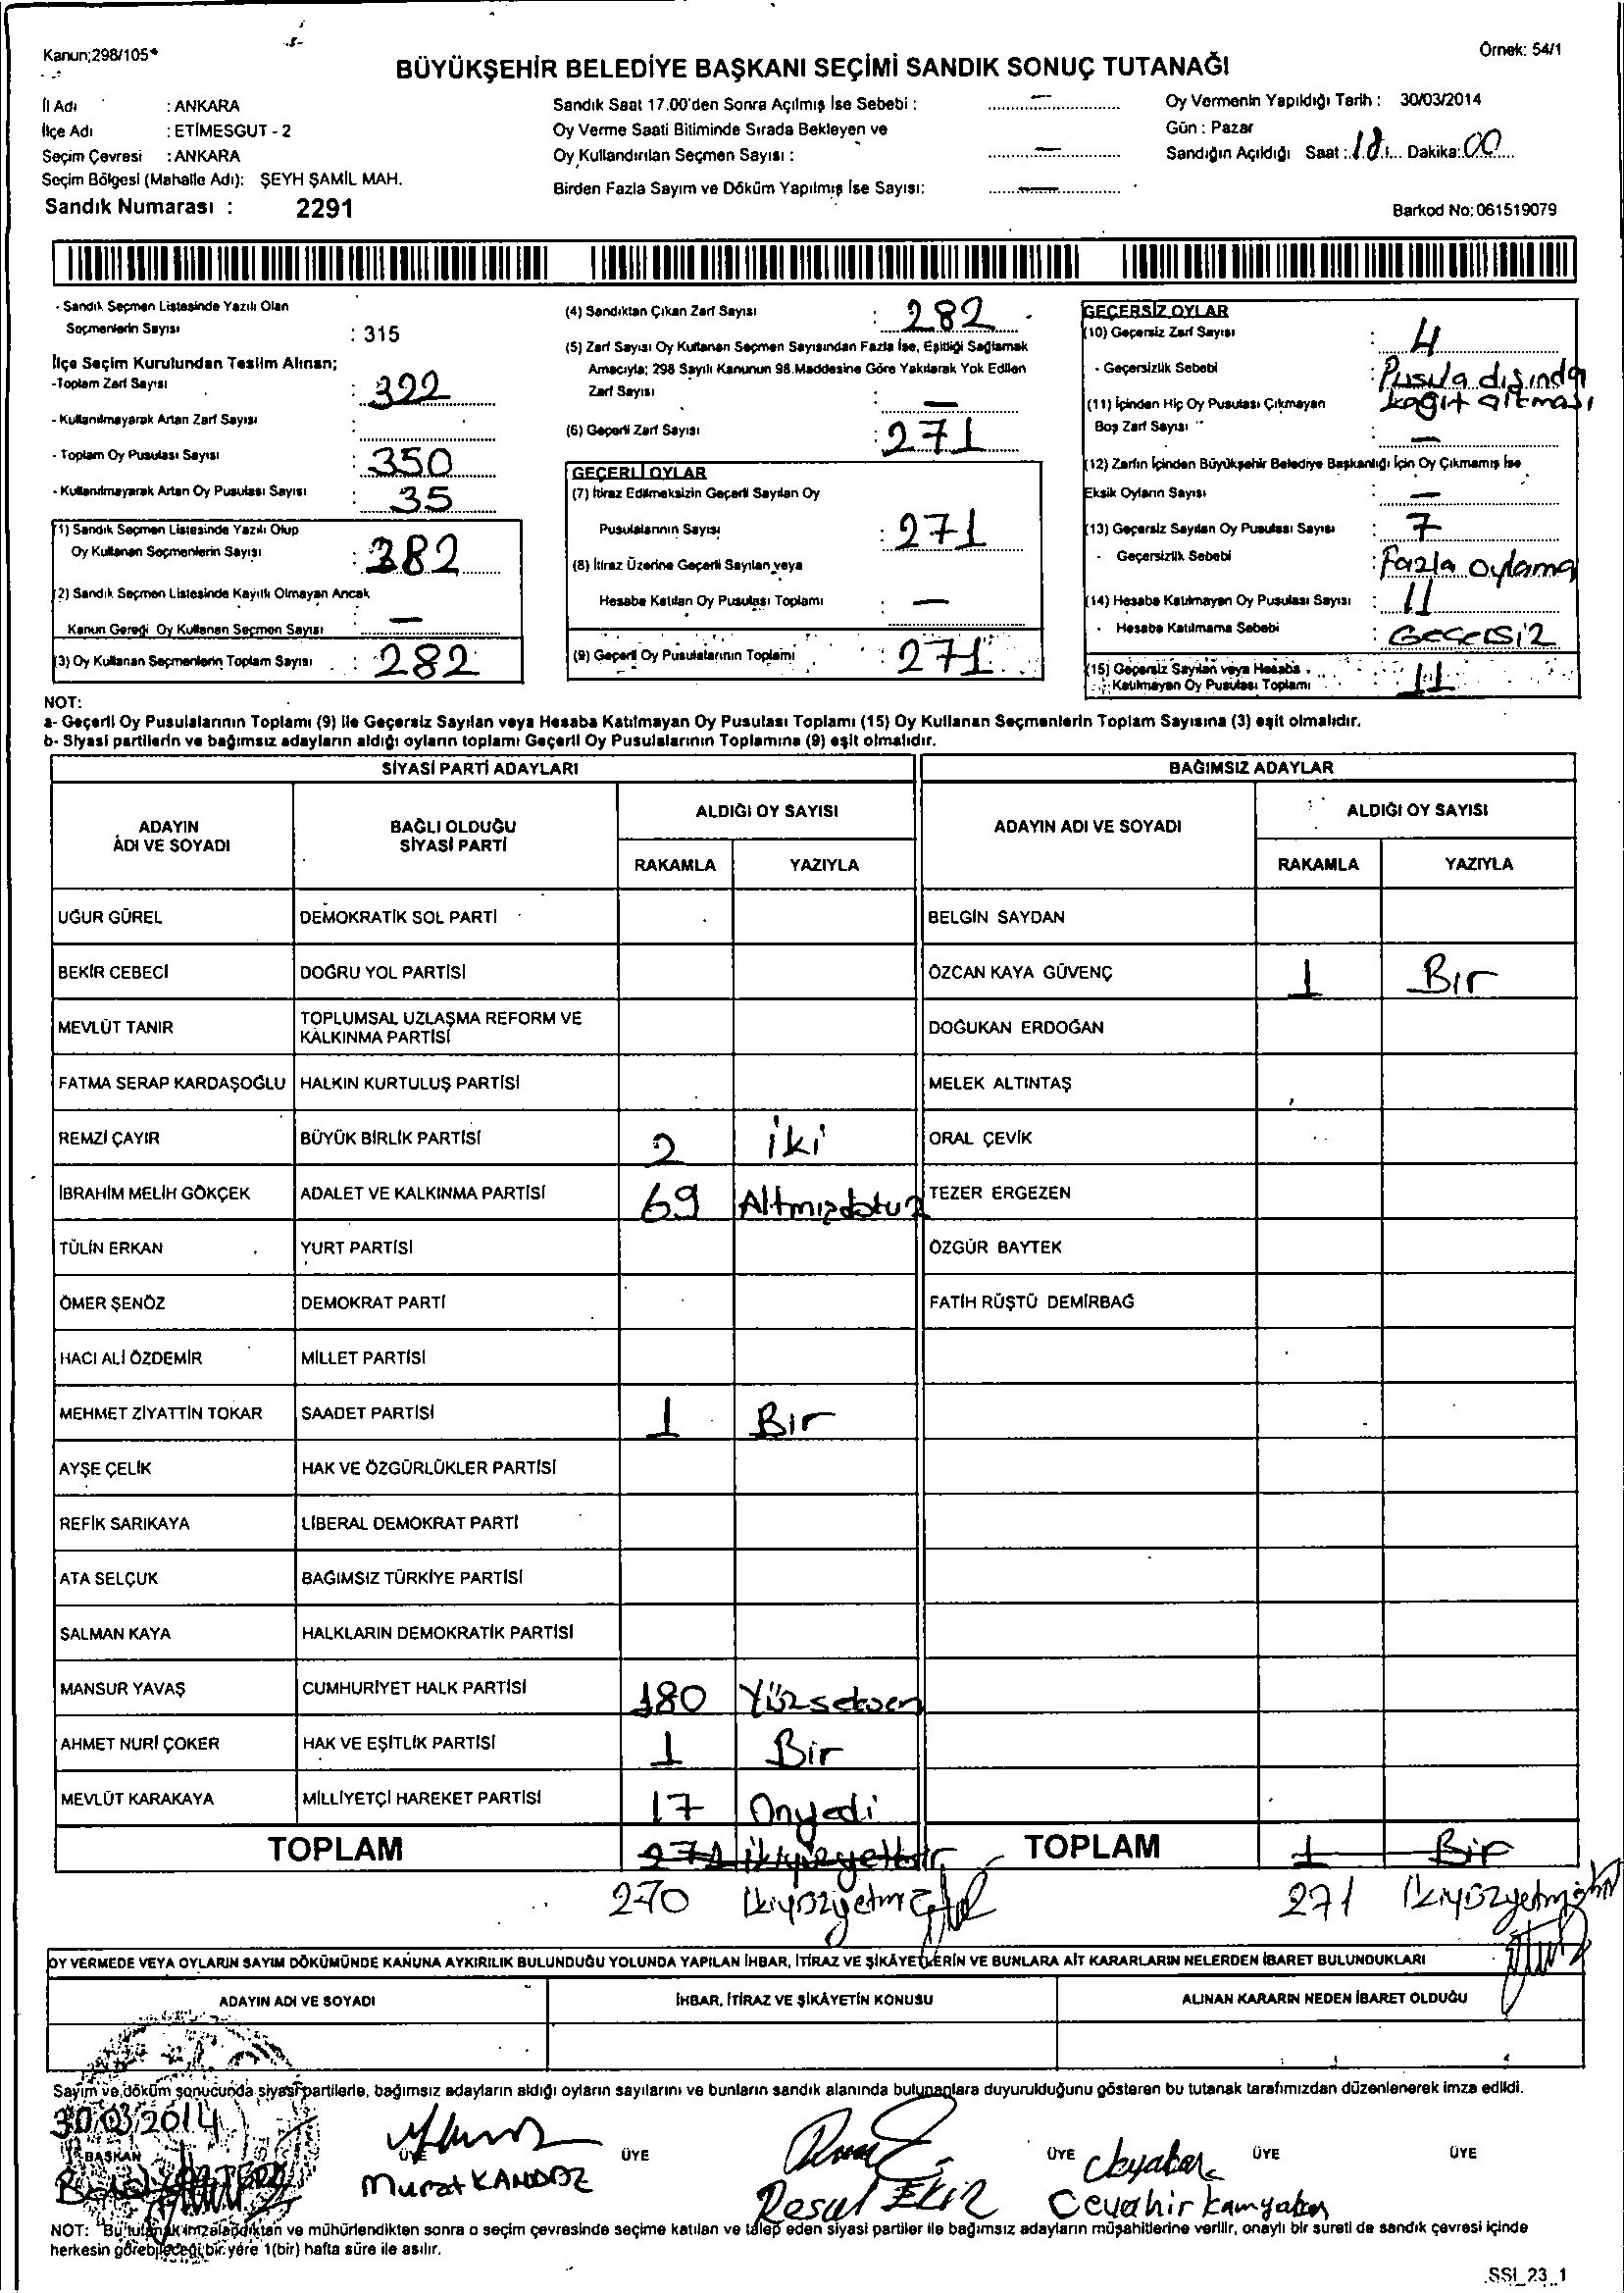 Kanun;298/105*
Örnek: 54/1
BÜYÜKŞEHİR BELEDİYE BAŞKANI SEÇİMİ SANDIK SONUÇ TUTANAĞI
İl Adı : ANKARA
İlçe Adı : ETİMESGUT - 2
Seçim Çevresi : ANKARA
Seçim Bölgesi (Mahalle Adı): ŞEYH ŞAMİL MAH.
Sandık Numarası : 2291
Sandık Saat 17.00'den Sonra Açılmış İse Sebebi : —
Oy Verme Saati Bitiminde Sırada Bekleyen ve
Oy Kullandırılan Seçmen Sayısı : —
Birden Fazla Sayım ve Döküm Yapılmış İse Sayısı: —
Oy Vermenin Yapıldığı Tarih : 30/03/2014
Gün : Pazar
Sandığın Açıldığı Saat : 18 Dakika: 00
Barkod No: 061519079
- Sandık Seçmen Listesinde Yazılı Olan
Seçmenlerin Sayısı : 315
İlçe Seçim Kurulundan Teslim Alınan;
-Toplam Zarf Sayısı : 322
- Kullanılmayarak Artan Zarf Sayısı :
- Toplam Oy Pusulası Sayısı : 350
- Kullanılmayarak Artan Oy Pusulası Sayısı : 35
(1) Sandık Seçmen Listesinde Yazılı Olup
Oy Kullanan Seçmenlerin Sayısı : 282
(2) Sandık Seçmen Listesinde Kayıtlı Olmayan Ancak
Kanun Gereği Oy Kullanan Seçmen Sayısı —
(3) Oy Kullanan Seçmenlerin Toplam Sayısı : 282
(4) Sandıktan Çıkan Zarf Sayısı : 282
(5) Zarf Sayısı Oy Kullanan Seçmen Sayısından Fazla İse, Eşitliği Sağlamak
Amacıyla; 298 Sayılı Kanunun 98.Maddesine Göre Yakılarak Yok Edilen
Zarf Sayısı : —
(6) Geçerli Zarf Sayısı : 271
GEÇERLİ OYLAR
(7) İtiraz Edilmeksizin Geçerli Sayılan Oy
Pusulalarının Sayısı : 271
(8) İtiraz Üzerine Geçerli Sayılan veya
Hesaba Katılan Oy Pusulası Toplamı : —
(9) Geçerli Oy Pusulalarının Toplamı : 271
GEÇERSİZ OYLAR
(10) Geçersiz Zarf Sayısı : 4
- Geçersizlik Sebebi : Pusula dışında
kağıt atılması
(11) İçinden Hiç Oy Pusulası Çıkmayan
Boş Zarf Sayısı : —
(12) Zarfın İçinden Büyükşehir Belediye Başkanlığı İçin Oy Çıkmamış İse
Eksik Oyların Sayısı : —
(13) Geçersiz Sayılan Oy Pusulası Sayısı : 7
- Geçersizlik Sebebi : Fazla oylama
(14) Hesaba Katılmayan Oy Pusulası Sayısı : 11
- Hesaba Katılmama Sebebi : Geçersiz
(15) Geçersiz Sayılan veya Hesaba
Katılmayan Oy Pusulası Toplamı : 11
NOT:
a- Geçerli Oy Pusulalarının Toplamı (9) ile Geçersiz Sayılan veya Hesaba Katılmayan Oy Pusulası Toplamı (15) Oy Kullanan Seçmenlerin Toplam Sayısına (3) eşit olmalıdır.
b- Siyasi partilerin ve bağımsız adayların aldığı oyların toplamı Geçerli Oy Pusulalarının Toplamına (9) eşit olmalıdır.
SİYASİ PARTİ ADAYLARI
ADAYIN ADI VE SOYADI BAĞLI OLDUĞU SİYASİ PARTİ ALDIĞI OY SAYISI
RAKAMLA YAZIYLA
UĞUR GÜREL DEMOKRATİK SOL PARTİ
BEKİR CEBECİ DOĞRU YOL PARTİSİ
MEVLÜT TANIR TOPLUMSAL UZLAŞMA REFORM VE
KALKINMA PARTİSİ
FATMA SERAP KARDAŞOĞLU HALKIN KURTULUŞ PARTİSİ
REMZİ ÇAYIR BÜYÜK BİRLİK PARTİSİ 2 iki
İBRAHİM MELİH GÖKÇEK ADALET VE KALKINMA PARTİSİ 69 Altmışdokuz
TÜLİN ERKAN YURT PARTİSİ
ÖMER ŞENÖZ DEMOKRAT PARTİ
HACI ALİ ÖZDEMİR MİLLET PARTİSİ
MEHMET ZİYATTİN TOKAR SAADET PARTİSİ 1 Bir
AYŞE ÇELİK HAK VE ÖZGÜRLÜKLER PARTİSİ
REFİK SARIKAYA LİBERAL DEMOKRAT PARTİ
ATA SELÇUK BAĞIMSIZ TÜRKİYE PARTİSİ
SALMAN KAYA HALKLARIN DEMOKRATİK PARTİSİ
MANSUR YAVAŞ CUMHURİYET HALK PARTİSİ 180 Yüzseksen
AHMET NURİ ÇOKER HAK VE EŞİTLİK PARTİSİ 1 Bir
MEVLÜT KARAKAYA MİLLİYETÇİ HAREKET PARTİSİ 17 Onyedi
TOPLAM 271 ikiyüzyetbir
270 ikiyüzyetmiş
BAĞIMSIZ ADAYLAR
ADAYIN ADI VE SOYADI ALDIĞI OY SAYISI
RAKAMLA YAZIYLA
BELGİN SAYDAN
ÖZCAN KAYA GÜVENÇ 1 Bir
DOĞUKAN ERDOĞAN
MELEK ALTINTAŞ
ORAL ÇEVİK
TEZER ERGEZEN
ÖZGÜR BAYTEK
FATİH RÜŞTÜ DEMİRBAĞ
TOPLAM 1 Bir
271
OY VERMEDE VEYA OYLARIN SAYIM DÖKÜMÜNDE KANUNA AYKIRILIK BULUNDUĞU YOLUNDA YAPILAN İHBAR, İTİRAZ VE ŞİKÂYETLERİN VE BUNLARA AİT KARARLARIN NELERDEN İBARET BULUNDUKLARI
ADAYIN ADI VE SOYADI İHBAR, İTİRAZ VE ŞİKÂYETİN KONUSU ALINAN KARARIN NEDEN İBARET OLDUĞU
Sayım ve döküm sonucunda siyasî partilerle, bağımsız adayların aldığı oyların sayılarını ve bunların sandık alanında bulunanlara duyurulduğunu gösteren bu tutanak tarafımızdan düzenlenerek imza edildi.
30.03.2014
BAŞKAN ÜYE ÜYE ÜYE ÜYE ÜYE
Murat KANDAZ Resul EKİZ Cevahir Kamyaban
NOT: Bu tutanak imzalandıktan ve mühürlendikten sonra o seçim çevresinde seçime katılan ve talep eden siyasi partiler ile bağımsız adayların müşahitlerine verilir, onaylı bir sureti de sandık çevresi içinde
herkesin görebileceği bir yere 1(bir) hafta süre ile asılır.
SSI_23_1